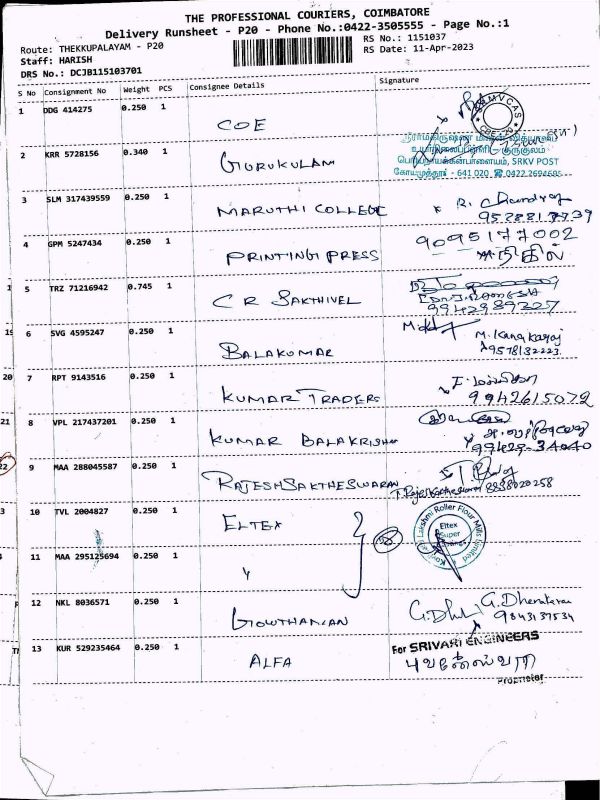 THE PROFESSIONAL COURIERS, COIMBATORE
Delivery Runsheet - P20 - Phone No.:0422-3505555 - Page No.:1
Route: THEKKUPALAYAM - P20
RS No.: 1151037
Staff: HARISH
RS Date: 11-Apr-2023
DRS No.: DCJB115103701
S No Consignment No Weight PCS Consignee Details Signature
1 DDG 414275 0.250 1 COE
2 KRR 5728156 0.340 1 GURUKULAM
பெரியநாயக்கன்பாளையம், SRKV POST
கோயமுத்தூர் - 641 020. ☎ 0422 2694685
3 SLM 317439559 0.250 1 MARUTHI COLLEGE R. Chandra
4 GPM 5247434 0.250 1 PRINTING PRESS 9095177002
5 TRZ 71216942 0.745 1 C R SAKTHIVEL
6 SVG 4595247 0.250 1 BALAKUMAR M. Kanakaraj
9578132223
7 RPT 9143516 0.250 1 KUMAR TRADERS 9942615072
8 VPL 217437201 0.250 1 KUMAR BALAKRISHNAN
99429-34040
9 MAA 288045587 0.250 1 RAJESH SAKTHESWARAN
8838020258
10 TVL 2004827 0.250 1 ELTEX
Lakshmi Roller Flour Mills Limited
Eltex
Super
11 MAA 295125694 0.250 1 〃
12 NKL 8036571 0.250 1 GOWTHAMAN
9843137534
13 KUR 529235464 0.250 1 ALFA
For SRIVARI ENGINEERS
புவனேஸ்வரி
Proprietor